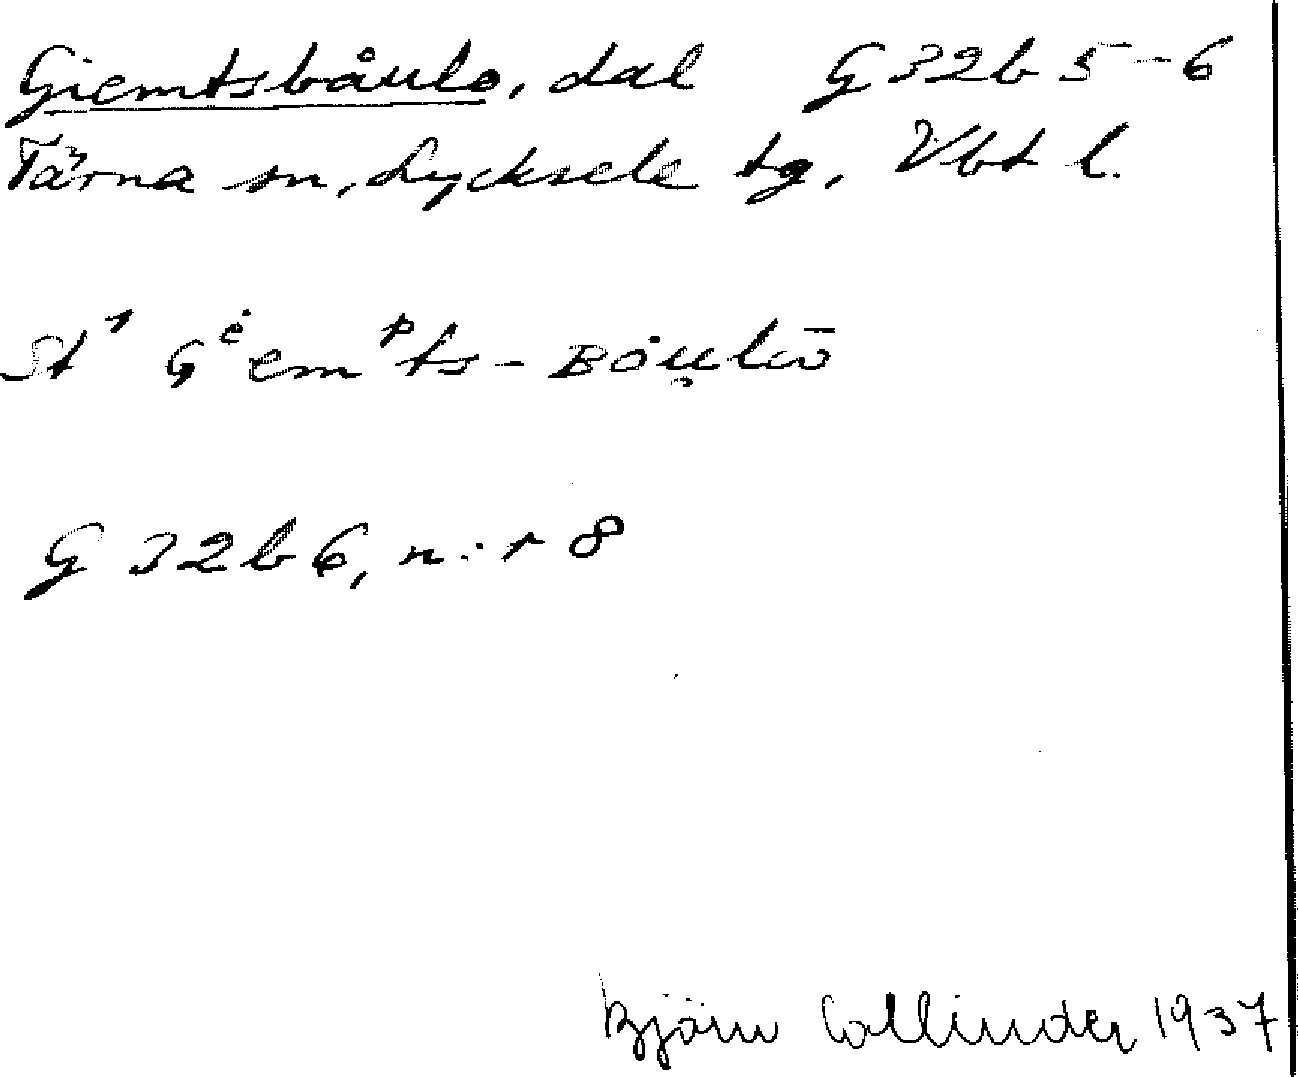 Giemtsbåulo, dal G 32 b 5-6
Tärna sn, Lycksele tg, Vbt l.
St¹ Gėemᵖts-ʙȯu̯lω̄
G 32 b 6, n:r 8
Björn Collinder 1937